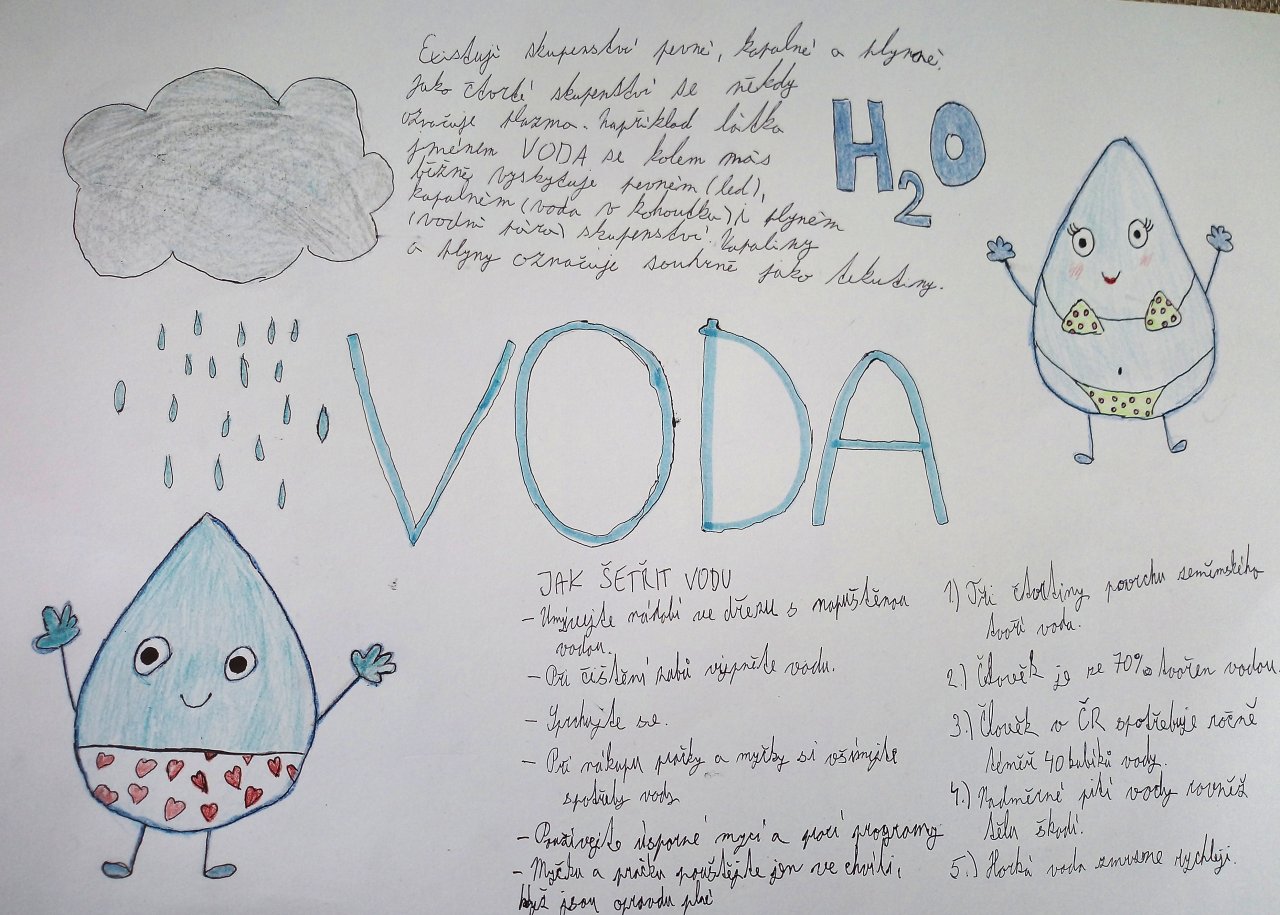 Existují skupenství pevné, kapalné a plynné.
Jako čtvrté skupenství se někdy
označuje plazma. Například látka
jménem VODA se kolem nás
běžně vyskytuje pevném (led),
kapalném (voda v kohoutku) i plyném
(vodní pára) skupenství. Kapaliny
a plyny označuje souhrně jako tekutiny.
H2O
VODA
JAK ŠETŘIT VODU
- Umývejte nádobí ve dřezu s napuštěnou
vodou.
- Při čištění zubů vypněte vodu.
- Sprchujte se.
- Při nákupu pračky a myčky si všímejte
spotřeby vody
- Používejte úsporné mycí a prací programy
- Myčku a pračku pouštějte jen ve chvíli,
když jsou opravdu plné
1) Tři čtvrtiny povrchu zeměmského
tvoří voda.
2.) Člověk je ze 70% tvořen vodou.
3.) Člověk v ČR spotřebuje ročně
téměř 40 kubíků vody.
4.) Nadměrné pití vody rovněž
tělu škodí.
5.) Horká voda zmrzne rychleji.